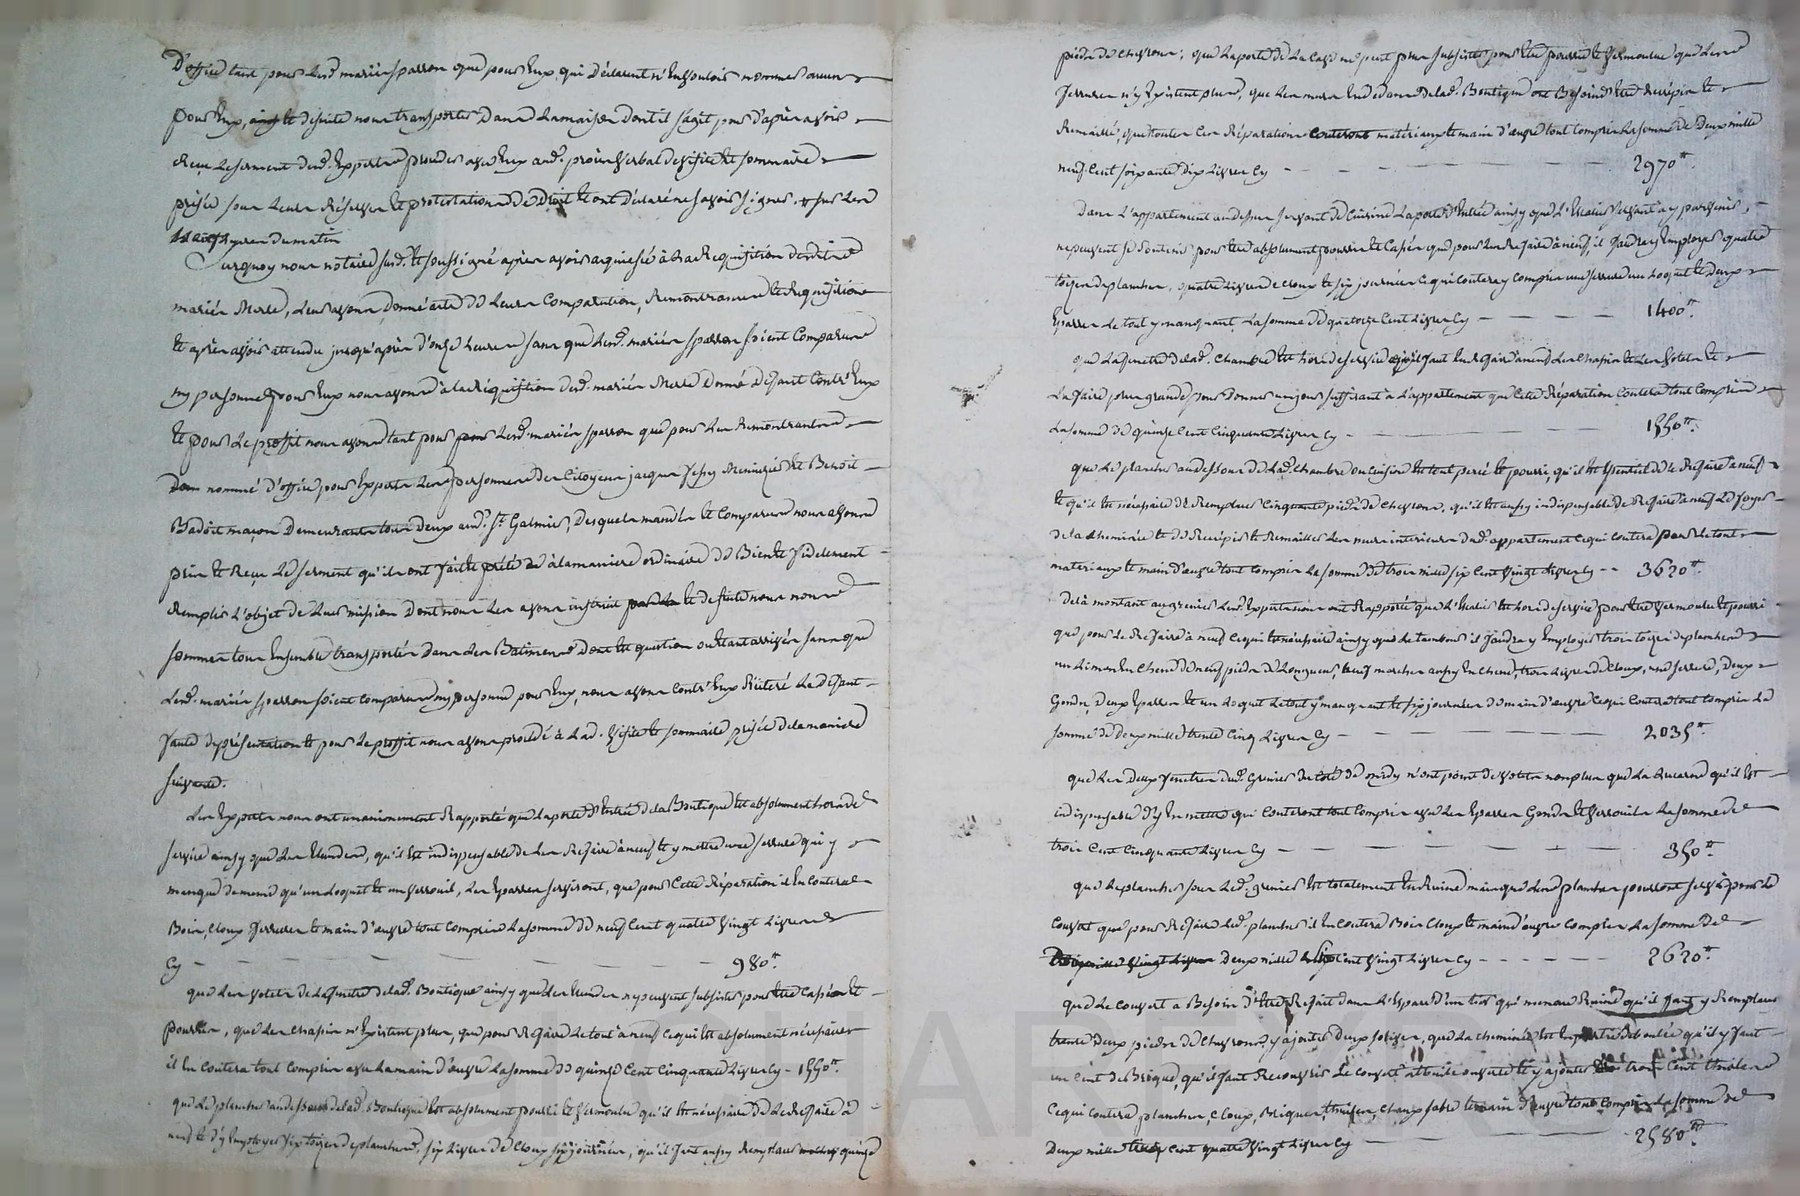 D'office tant pour lesd. mariés sparron que pour Eux, qui déclarent n'En vouloir nommer aucun
pour Eux, et de suitte nous transporter dans la maison dont il s'agit pour d'après avoir
Reçu le serment desd. Experts procéder avec Eux aud. procès verbal de visite et sommaire
prisée sous leurs Réserves et protestations de Droit et ont déclaré ne savoir signer. sur les
onze heures du matin
Surquoy nous notaire susd. et soussigné après avoir acquiescé à la Requisition desdits
mariés Merle, leur avons donné acte de leurs Comparution, Remontrances et Requisition
et après avoir attendu jusqu'après d'onze heures sans que lesd. mariés sparron soient Comparus
ny personne pour Eux nous avons à la réquisition desd. mariés Merle donné Défaut Contr'Eux
et pour le proffit nous avons tant pour lesd. mariés sparron que pour les Remontrants
nommé d'office pour Experts les personnes des Citoyens jacques Menuizier et Benoit
Badoit maçon Demeurants tous deux aud. St. Galmier, desquels mandés et Comparus nous avons
pris et Reçu le serment qu'ils ont fait et prêté à la maniere ordinaire de Bien et fidelement
Remplir l'objet de leur mission dont nous les avons instruit et de suite nous nous
sommes tous Ensemble transportés dans les Batiments dont Est question où étant arrivés sans que
lesd. mariés sparron soient comparus ny personne pour Eux, nous avons contr'Eux Réiteré le Défaut
faute de présentation et pour le proffit nous avons procédé à lad. visite et sommaire prisée de la maniere
suivante.
Les Experts nous ont unanimement Rapporté que la porte d'Entrée de la Boutique est absolument hors de
service ainsy que les , qu'il Est indispensable de les Refaire à neuf et y mettre une serrure qui y
manque de meme qu'un loquet et un verrouil, les Eparres serviront, que pour Cette Réparation il En coutera
Bois, cloux ferrures et main d'œuvre tout compris la somme de neuf cent quatre vingt livres
Cy — — — — — — — — 980 ₶.
que les volets de la fenetre de lad. Boutique ainsy que les ne peuvent subsister pour être Cassés et
pourris, que les chassis n'Existent plus, que pour Refaire le tout à neuf ce qui Est absolument nécessaire
il En coutera tout compris avec la main d'œuvre la somme de quinze Cent Cinquante livres Cy - 1550 ₶.
que le plancher au dessous de lad. Boutique Est absolument pourri et Vermoulu qu'il Est nécessaire de le Refaire à
neuf et d'y Employer six toizes de plancher, six livres de cloux six journées, qu'il faut aussy Remplacer quinze
pieds de chevrons; que la porte de la cave ne peut plus subsister pour Etre pourrie et Vermoulue que les
ferrures n'y Existent plus, que les murs En dedans de lad. Boutique ont Besoin d'etre Recrépis et
Remaillé, que toutes ces Réparations couteront matériaux et main d'œuvre tout Compris la somme de Deux mille
neuf Cent soixante Dix livres Cy — — — — 2970 ₶.
Dans l'appartement au dessus servant de Cuisine la porte d'Entrée ainsy que l'Escalier servant à y parvenir,
ne peuvent se soutenir pour être absolument pourris et Cassés que pour les Refaire à neuf, il faudra y Employer quatre
toizes de plancher, quatre livres de cloux et six journées ce qui coutera y compris une serrure un loquet et Deux
Eparres le tout y manquant, la somme de quatorze Cent livres Cy — — — — 1400 ₶.
que la fenetre de lad. chambre Est hors de service qu'il faut En Refaire à neuf les chassis et les volets et
la faire plus grande pour donner un jour suffisant à l'appartement que Cette Réparation coutera tout Compris
la somme de quinze Cent Cinquante livres Cy — — — — 1550 ₶.
que le plancher au dessous de lad. chambre ou cuisine Est tout percé et pourri, qu'il Est Essentiel de le Refaire à neuf
et qu'il Est nécessaire de Remplacer Cinquante pieds de chevrons, qu'il Est aussy indispensable de Refaire à neuf le foyer
de la cheminée et de Recrépir et Remailler les murs interieurs dud. appartement ce qui coutera pour le tout
materiaux et main d'œuvre tout compris la somme de trois mille six Cent Vingt livres Cy - - 3620 ₶.
De là montant au grenier lesd. Experts nous ont Rapporté que l'Escalier Est hors de service pour etre vermoulu et pourri
que pour le Refaire à neuf ce qui Est nécessaire ainsy que le tambour il faudra y Employer trois toizes de plancher
un limon En chene de neuf pieds de longueur, neuf marches aussy En chene, trois livres de cloux, une serrure, deux
Gonds, Deux Eparres et un loquet le tout y manquant et six journées de main d'œuvre ce qui coutera tout compris la
somme de Deux mille trente Cinq livres Cy — — — — 2035 ₶.
que les Deux fenetres dud. Grenier du coté de midy n'ont point de volets non plus que la lucarne qu'il Est
indispensable d'y En mettre qui couteront tout Compris avec les Eparres Gonds et Verrouils la somme de
trois Cent Cinquante livres Cy — — — — 350 ₶.
que le plancher sur led. grenier Est totalement En Ruine mais que les d. planches pourront servir pour le
Couvert que pour Refaire led. plancher il En coutera Bois Cloux et main d'œuvre Compris la somme de
Deux mille six Cent Vingt livres Cy — — — — 2620 ₶.
que le Couvert a Besoin d'être Refait dans l'Espace d'un tiers qui menace Ruine qu'il faut y Remplacer
trente Deux pieds de chevrons, y ajouter Deux solives, que la cheminée est En partie Eboulée qu'il y faut
un Cent de Brique, qu'il faut Recouvrir le couvert et y ajouter trois Cent thuiles
ce qui coutera planches, cloux, Briques, thuiles, chaux sable et main d'œuvre tout compris la somme de
Deux mille Cent quatre vingt livres Cy — — — — 2580 ₶.